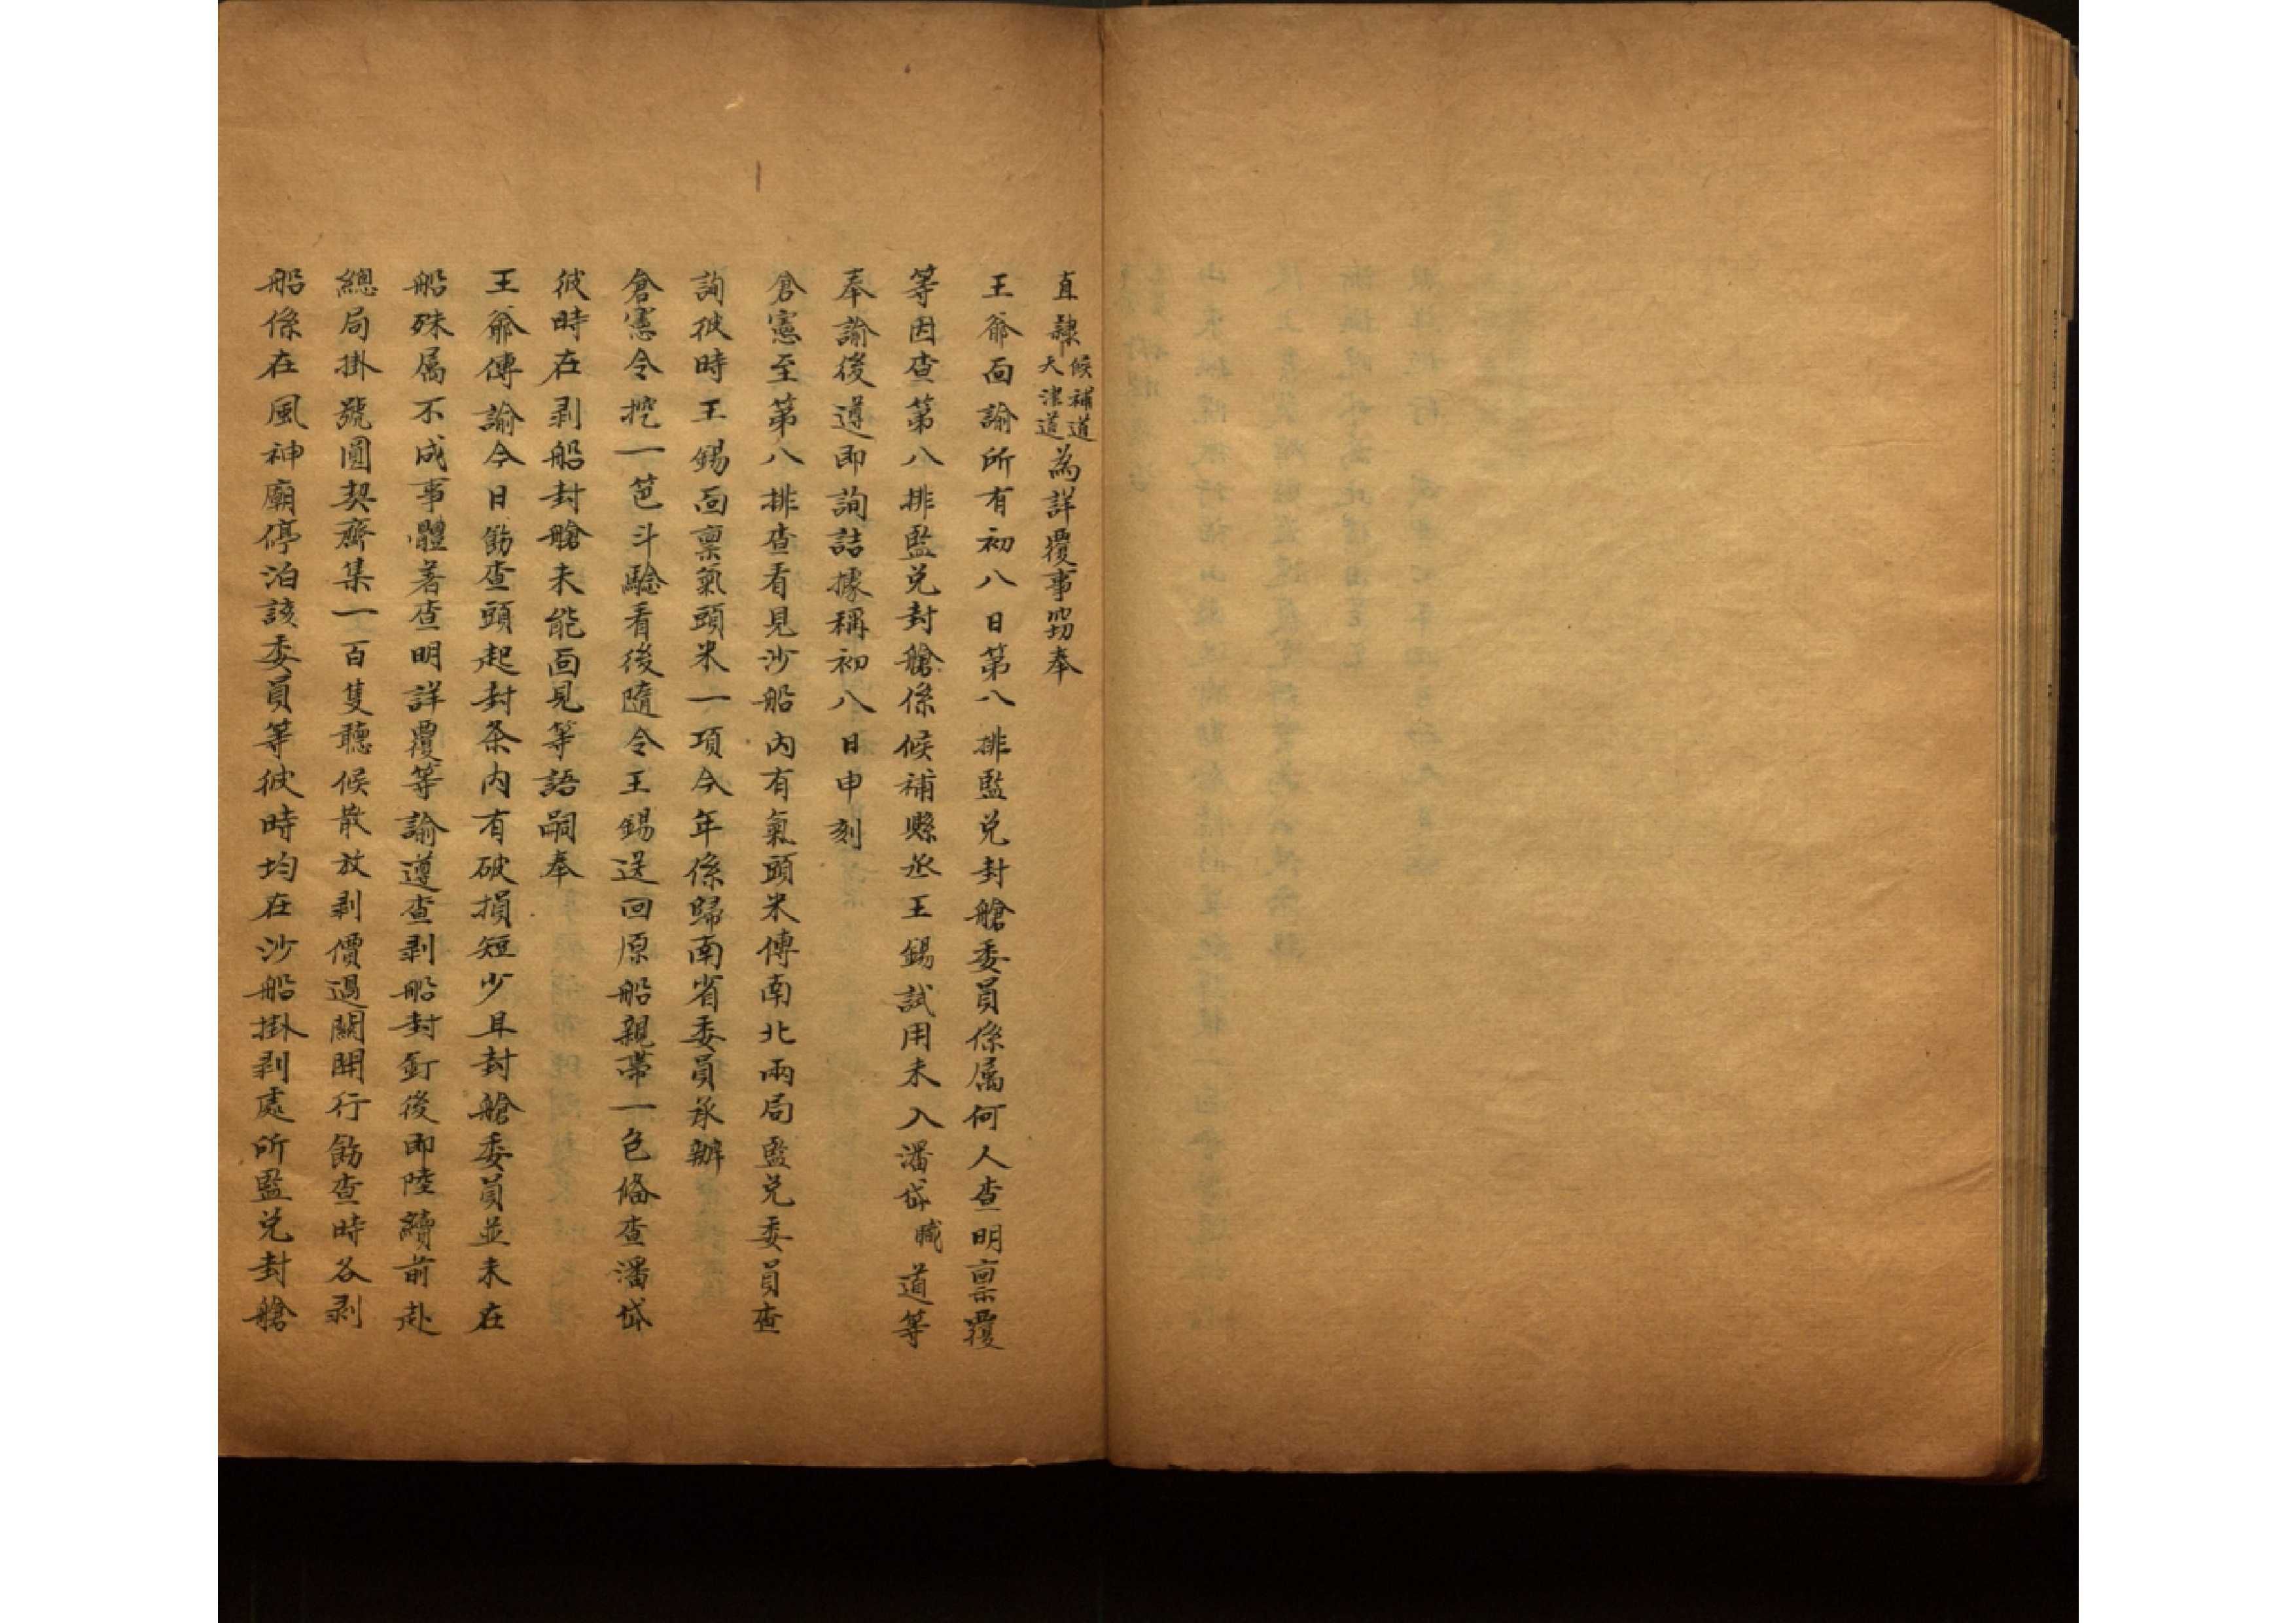 直隸候補道天津道為詳覆事竊奉
王爺面諭所有初八日第八排監兌封艙委員係属何人查明禀覆
等因查第八排監兌封艙係候補縣丞王錫試用未入潘岱職道等
奉諭後遵即詢詰據稱初八日申刻
倉憲至第八排查看見沙船內有氣頭米傳南北兩局監兌委員查
詢彼時王錫面禀氣頭米一項今年係歸南省委員承辦
倉憲令挖一笆斗驗看後隨令王錫送回原船親帶一色俻查潘岱
彼時在剥船封艙未能面見等語嗣奉
王爺傳諭今日飭查頭起封条內有破損短少且封艙委員並未在
船殊属不成事體著查明詳覆等諭遵查剥船封釘後即陸續前赴
總局掛號圓契齊集一百隻聽候散放剥價過關開行飭查時各剥
船係在風神廟停泊該委員等彼時均在沙船掛剥處所監兌封艙